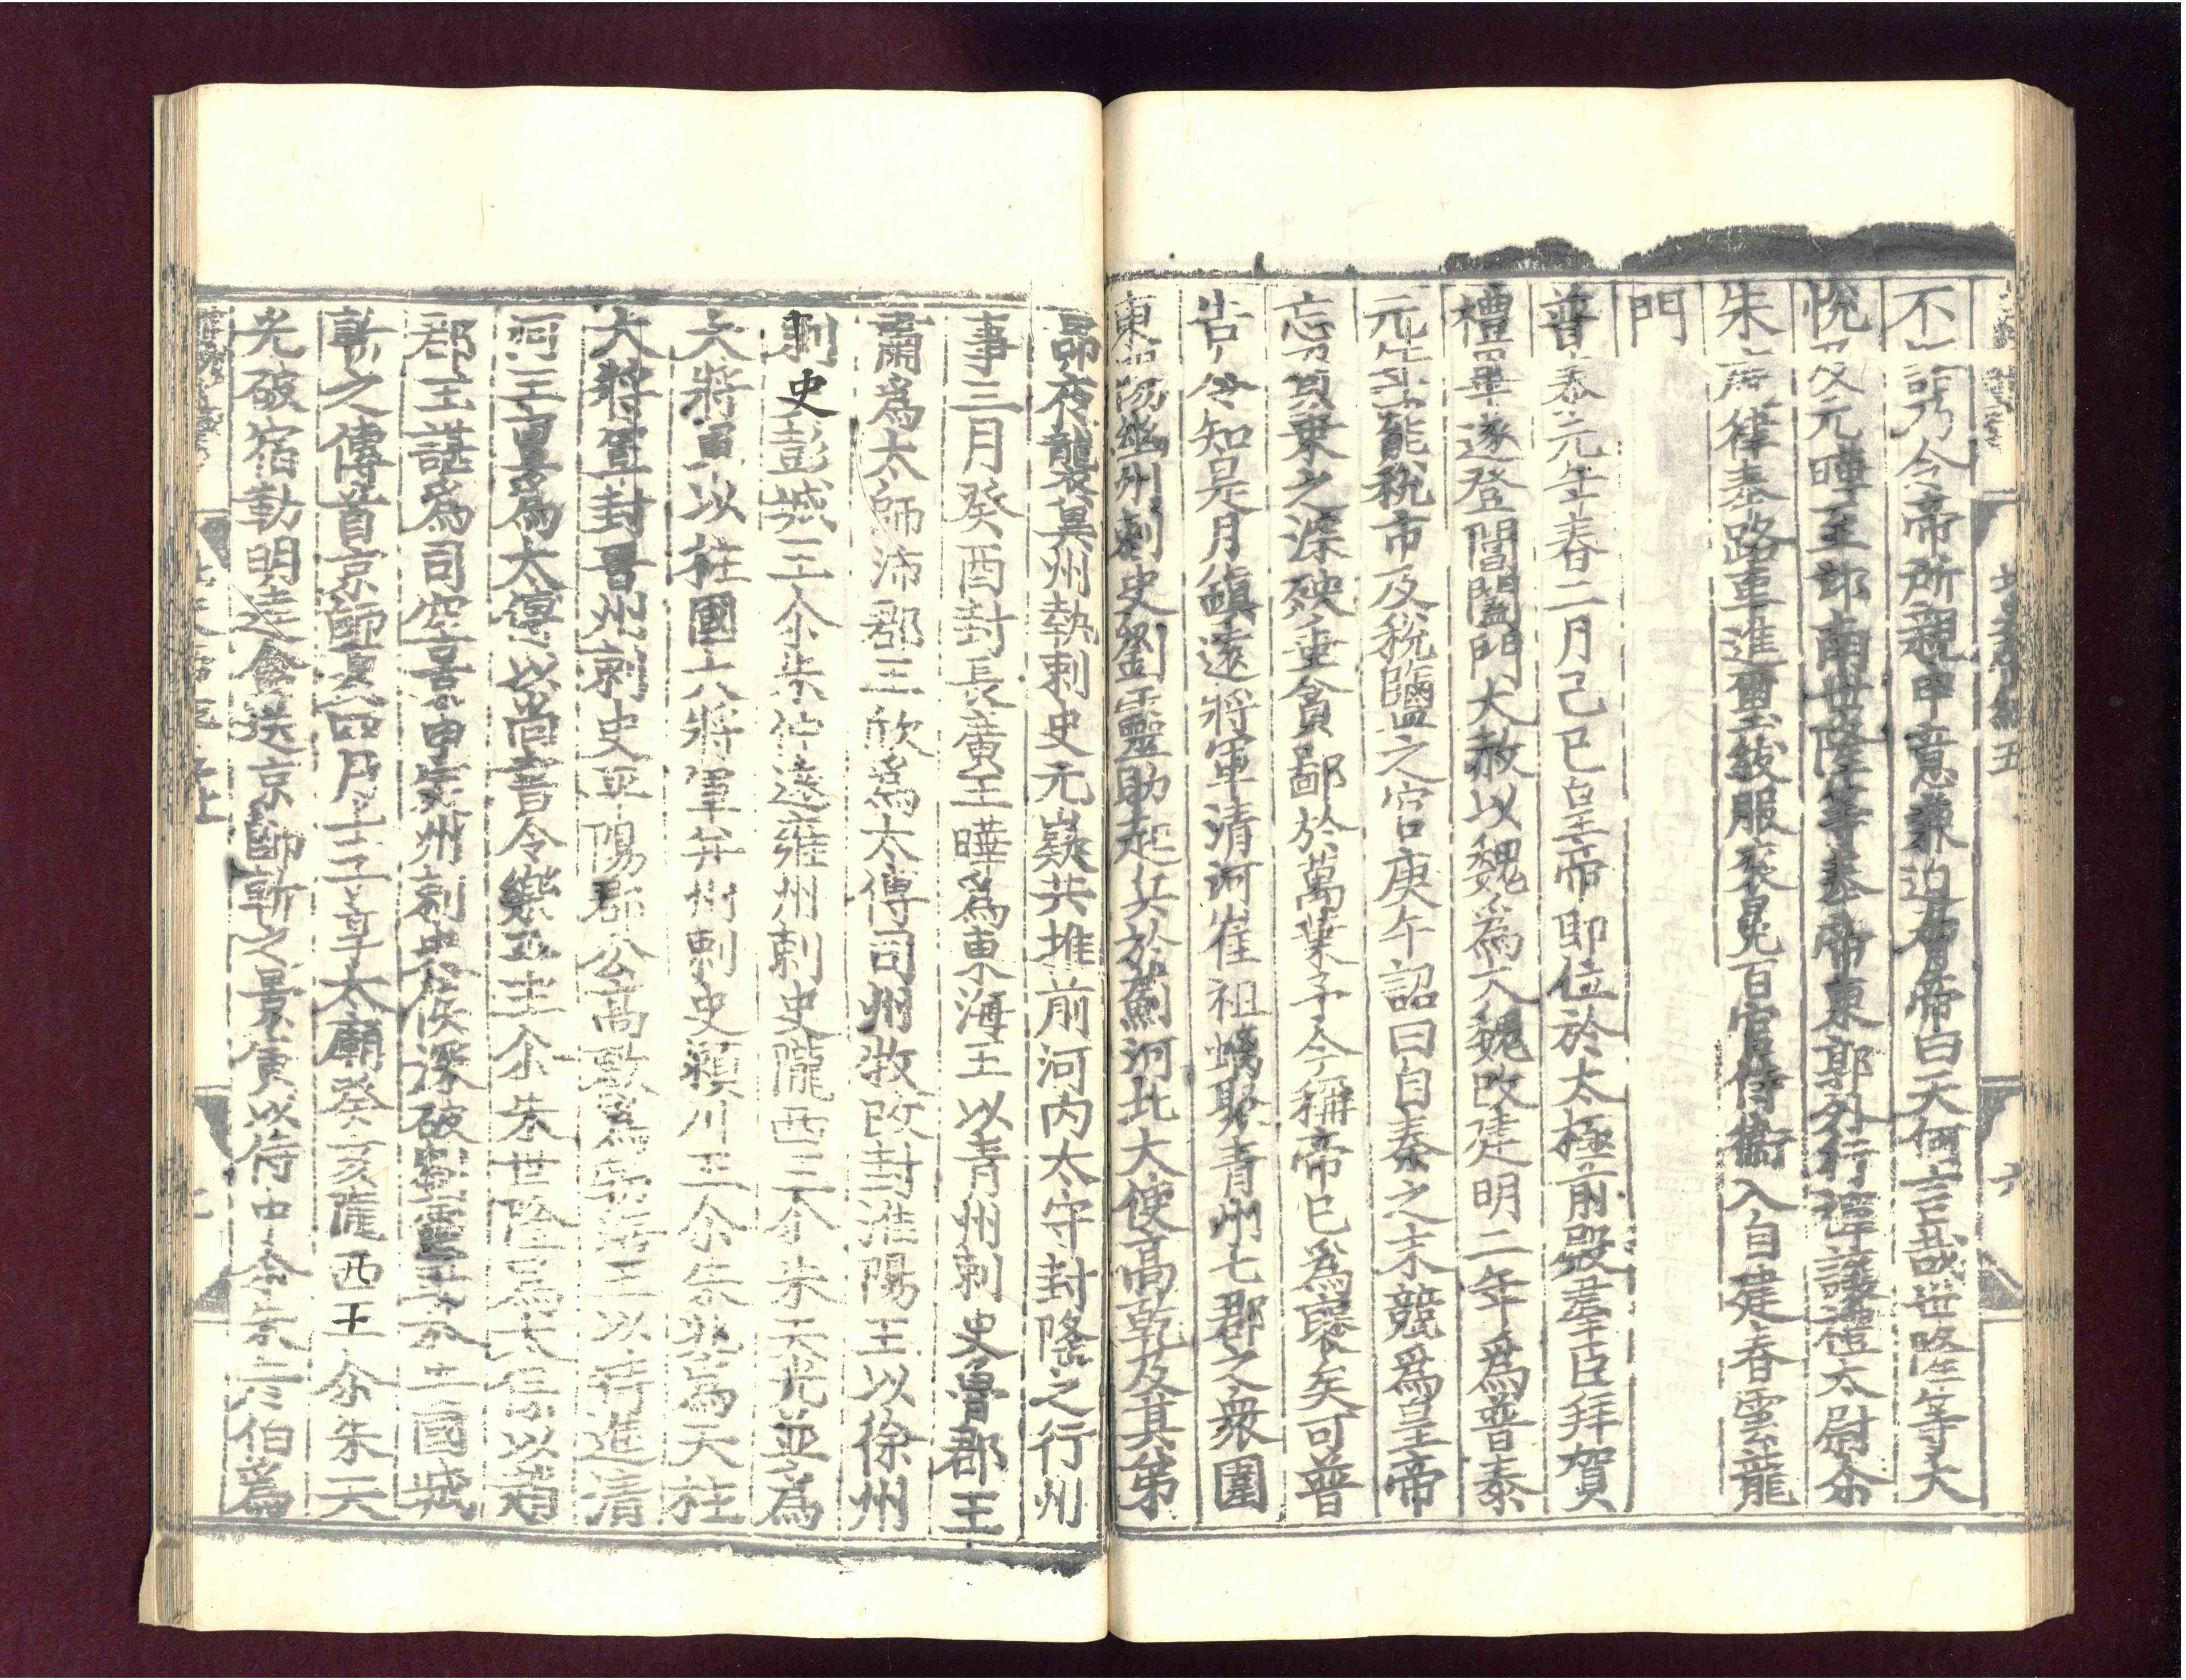 不言乃令帝所親申意兼迫脅帝曰天何言哉世隆等大
悅及元曄至郊南世隆等奉帝東郭外行禪讓禮太尉尒
朱度律奉路車進璽紱服袞冕百官侍衛入自建春雲龍
門
普泰元年春二月己巳皇帝即位於太極前殿羣臣拜賀
禮畢遂登閶闔門大赦以魏為大魏改建明二年爲普泰
元年罷稅市及稅鹽之官庚午詔曰自秦之末競爲皇帝
忘負乗之深殃垂貪鄙於萬葉予今稱帝已爲襃矣可普
告令知是月鎮遠將軍清河崔祖螭聚青州七郡之衆圍
東陽幽州刺史劉靈助起兵於薊河北大使高乾及其弟
昂夜襲冀州執刺史元嶷共推前河內太守封隆之行州
事三月癸酉封長廣王曄爲東海王以青州刺史魯郡王
肅爲太師沛郡王欣爲太傅司州牧改封淮陽王以徐州
刺史彭城王尒朱仲遠雍州刺史隴西王尒朱天光並爲
大將軍以柱國大將軍并州刺史潁川王尒朱兆爲天柱
大將軍封晉州刺史平陽郡公高歡爲勃海王以特進清
河王亶爲太傅以尚書令樂平王尒朱世隆爲太保以趙
郡王諶爲司空壬申定州刺史侯深破劉靈助於安國城
斬之傳首京師夏四月壬子享太廟癸亥隴西王尒朱天
光破宿勤明達禽送京師斬之景寅以侍中尒朱彥伯爲
北魏紀五
六